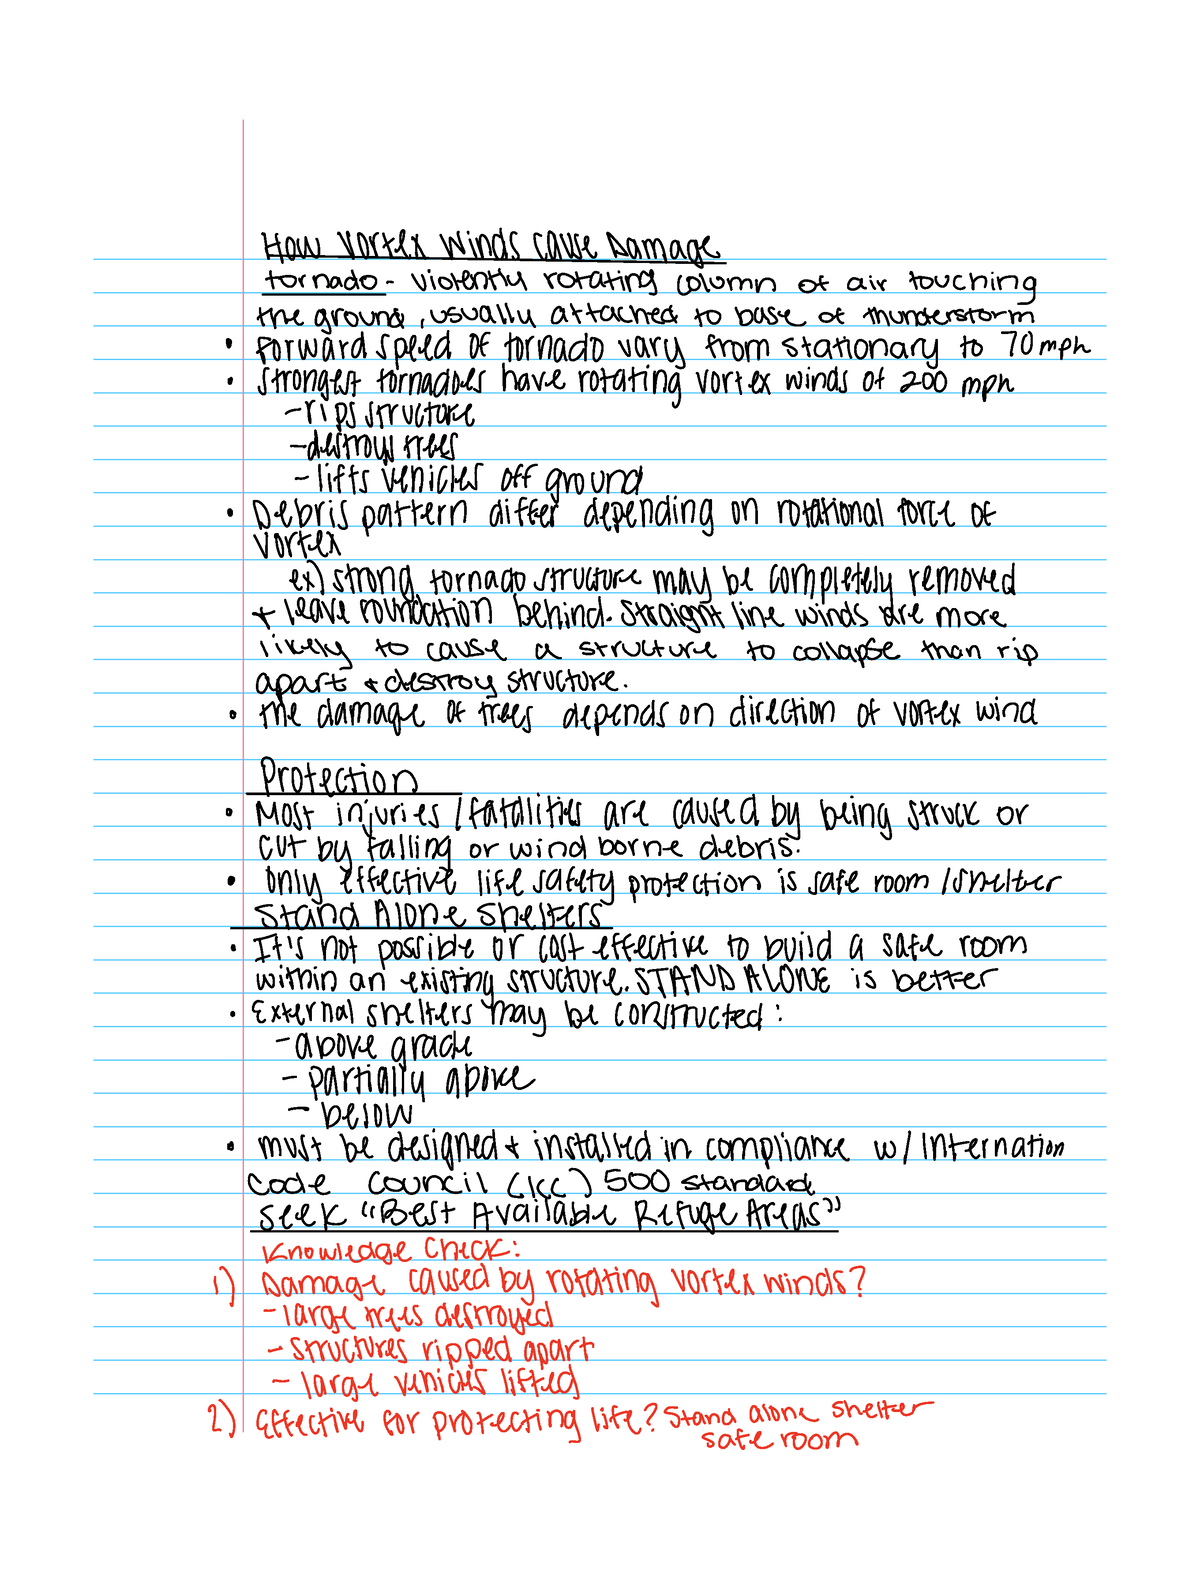 How Vortex Winds Cause Damage
tornado - violently rotating column of air touching
the ground, usually attached to base of thunderstorm
• forward speed of tornado vary from stationary to 70 mph
• strongest tornadoes have rotating vortex winds of 200 mph
- rips structure
- destroys trees
- lifts vehicles off ground
• Debris pattern differ depending on rotational force of
vortex
ex) strong tornado structure may be completely removed
+ leave foundation behind. Straight line winds are more
likely to cause a structure to collapse than rip
apart + destroy structure.
• the damage of trees depends on direction of vortex wind
Protection
• Most injuries / fatalities are caused by being struck or
cut by falling or wind borne debris.
• only effective life safety protection is safe room / shelter
Stand Alone Shelters
• It's not possible or cost effective to build a safe room
within an existing structure. STAND ALONE is better
• External shelters may be constructed:
- above grade
- partially above
- below
• must be designed + installed in compliance w/ Internation
Code Council (ICC) 500 standard
Seek "Best Available Refuge Areas"
Knowledge Check:
1) Damage caused by rotating vortex winds?
- large trees destroyed
- structures ripped apart
- large vehicles lifted
2) Effective for protecting life? Stand alone shelter
safe room